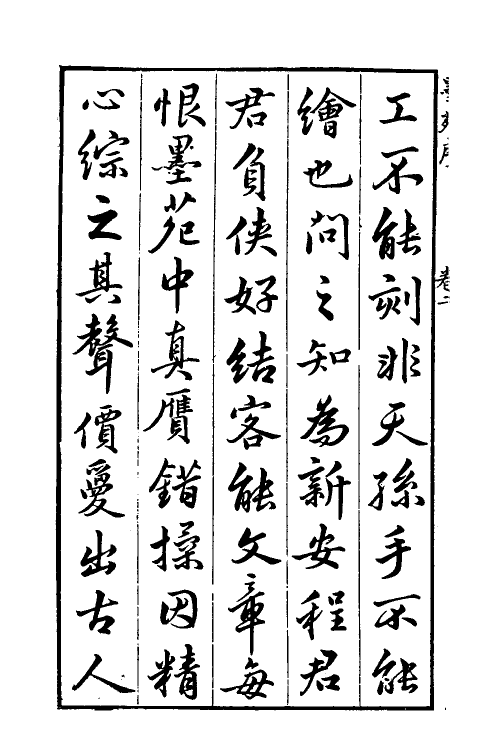 工不能刻非天孫手不能
繪也問之知為新安程君
君負俠好結客能文章每
恨墨苑中真贋錯揉因精
心綜之其聲價爰出古人
墨苑序
卷二